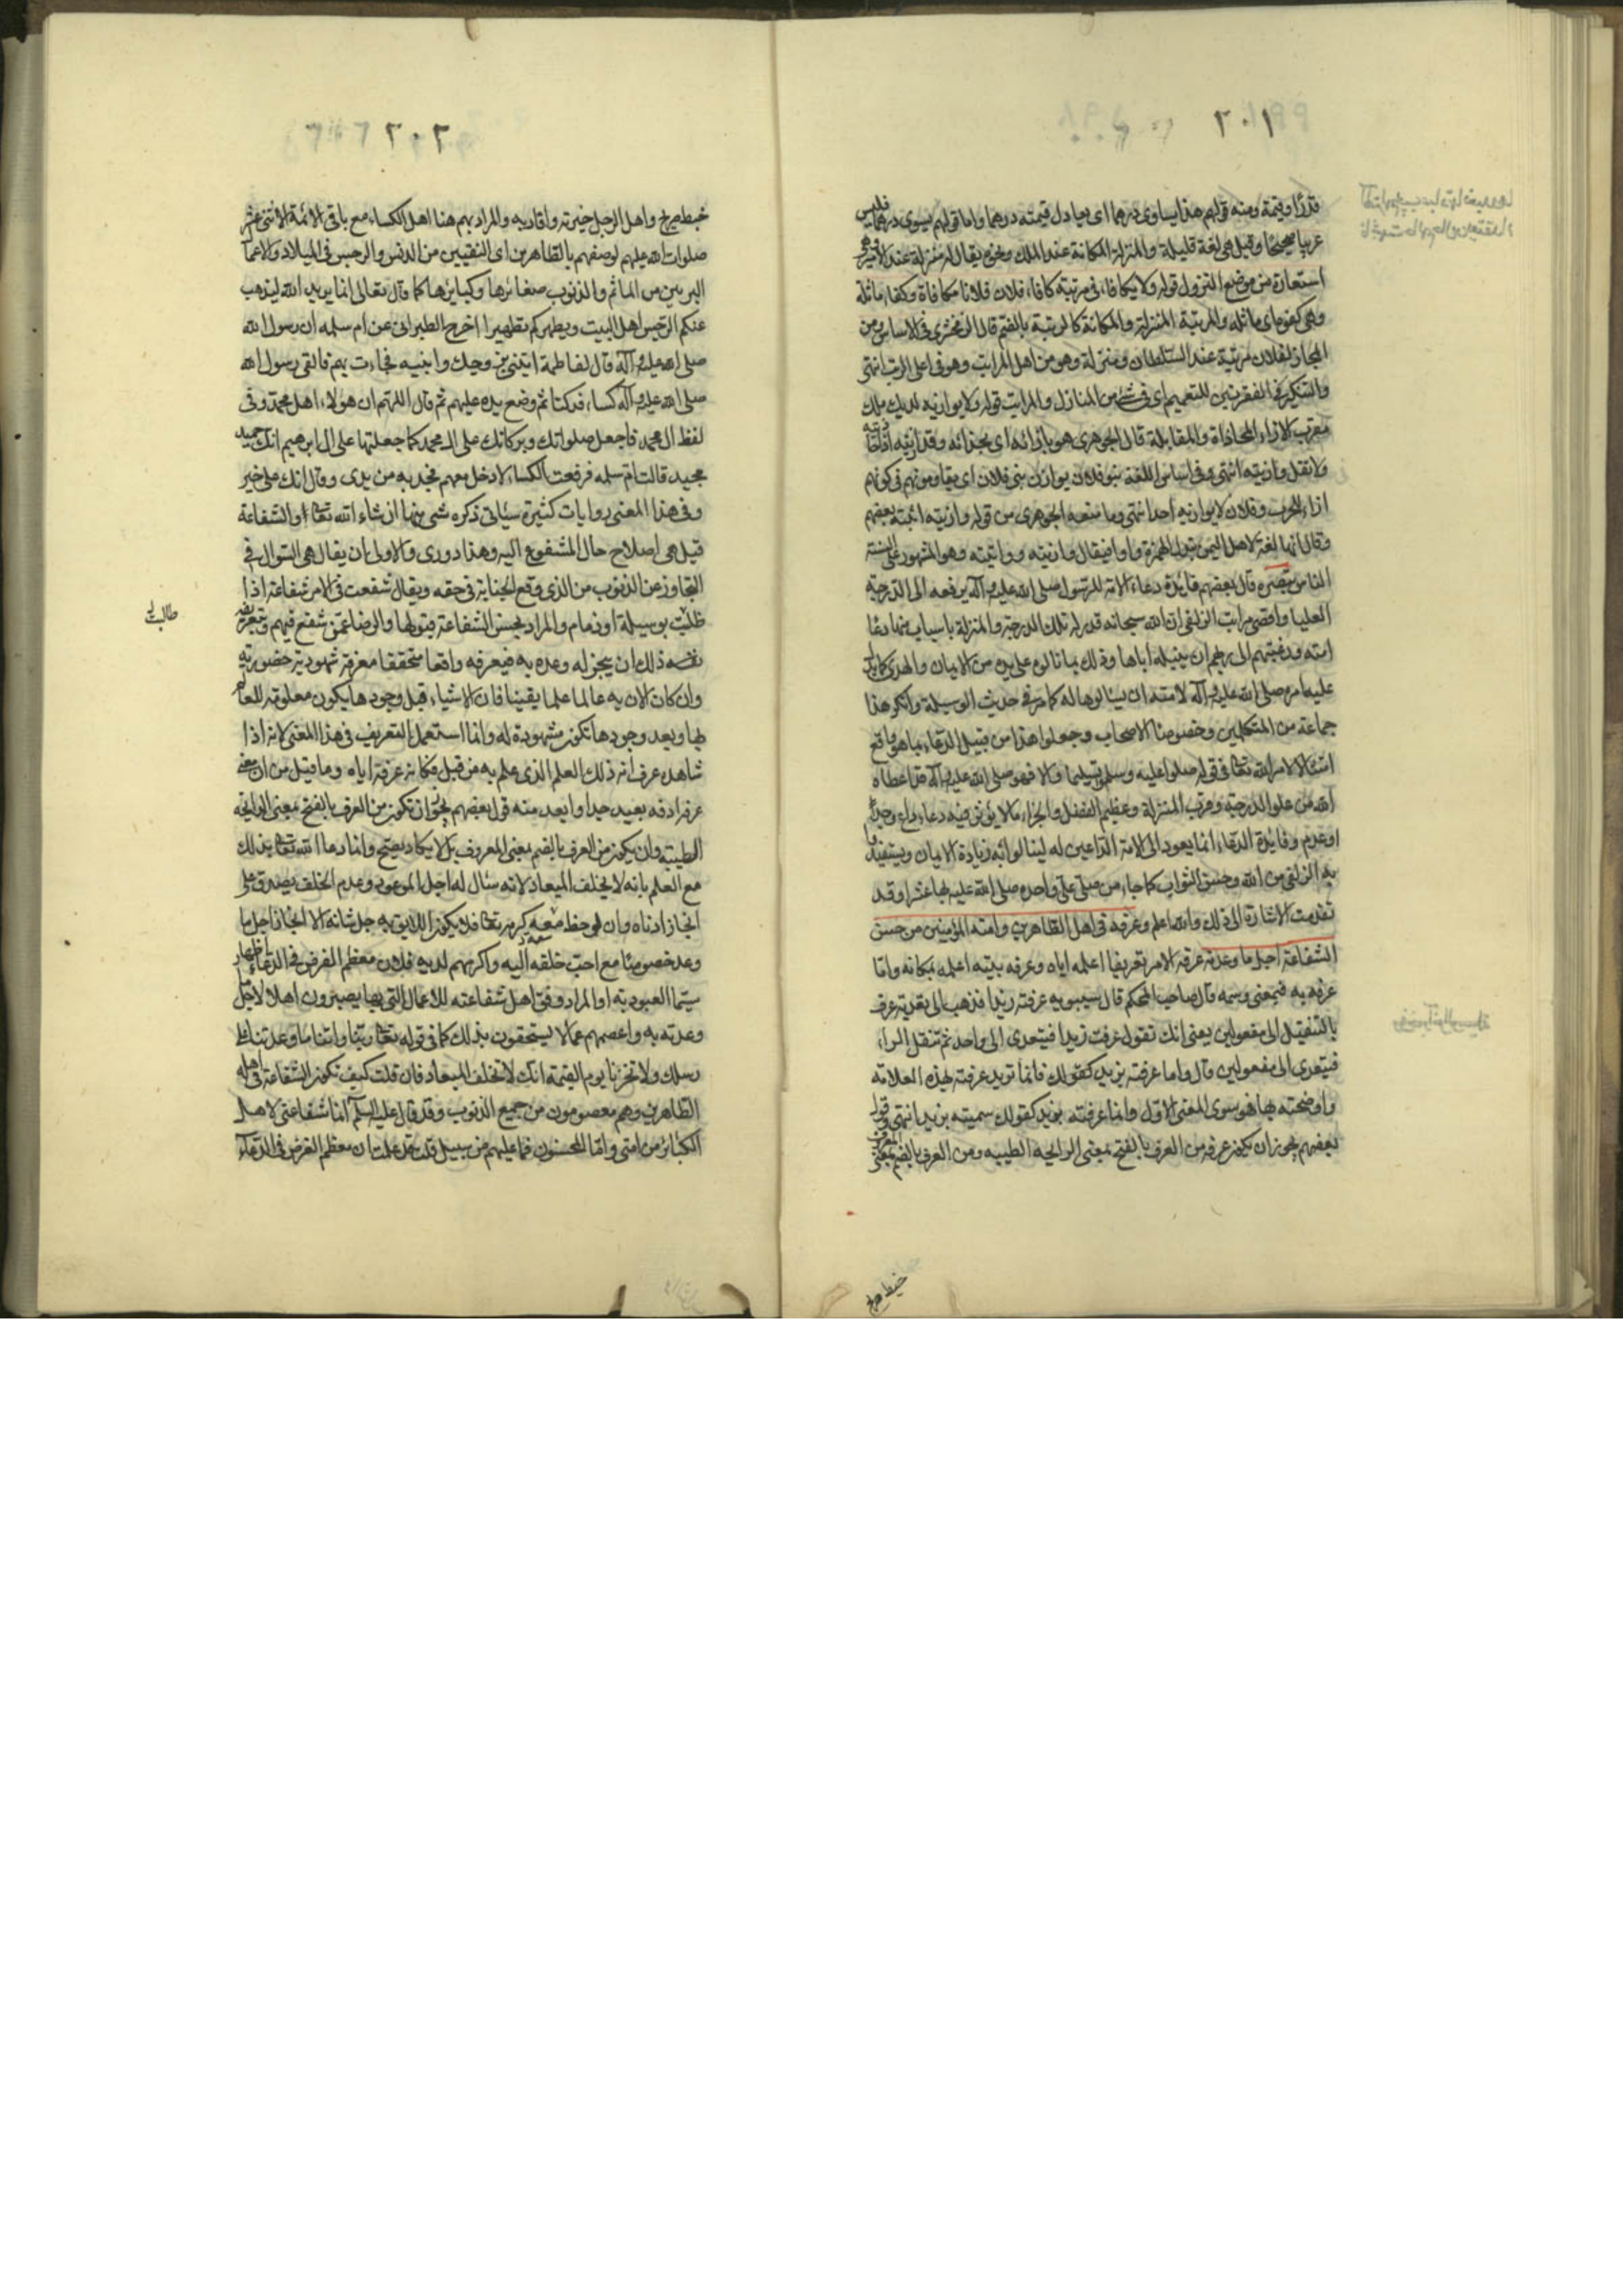 ٢٠١
قدرًا وقيمة ومنه قولهم هذا يساوى درهما اى يعادل قيمته درهما واما قولهم يسوى درهما فليس
عربيا صحيحًا وقيل هى لغة قليلة والمنزلة المكانة عند الملك ونحوه يقال له منزلة عند الامير وهو
استعارة من موضع النزول قوله ولا يكافا، فى مرتبة كافا، فلان فلانا مكافاة وكفاء ماثله
وهى كفوه اى ماثله والمرتبة المنزلة والمكانة كالرتبة بالضم قال الزمخشرى فى الاساس ومن
المجاز لفلان مرتبة عند السلطان ومنزلة وهو من اهل المراتب وهو فى اعلى الرتب انتهى
والتنكير فى الفقرتين للتعميم اى فى شئ من المنازل والمراتب قوله ولا يوازيه لديك ملك
مقرب الازاء المحاذاة والمقابلة قال الجوهرى هو بازائه اى بحذائه وقد ازيته اذا حاذيته
ولا تقل وازيته انتهى وفى اساس اللغة بنو فلان يوازون بنى فلان اى يقاومونهم فى كونهم
ازاء للحرب وفلان لا يوازيه احد انتهى وما منعه الجوهرى من قوله وازيته اثبته بعضهم
وقال انها لغة لاهل اليمن تبدل الهمزة واوا فيقال وازيته وواتيته وهو المشهور على السنة
الناس تبصره قال بعضهم فايدة دعاء الامة للرسول صلى الله عليه وآله يرفعه الى الدرجة
العليا واقصى مراتب الزلفى ان الله سبحانه قدر له تلك الدرجة والمنزلة باسباب منها دعاء
امته ورغبتهم الى ربهم ان ينيله اياها وذلك بما نالوه على يديه من الايمان والهدى كما يدل
عليه امره صلى الله عليه وآله لامته ان يسالوها له كما مر فى حديث الوسيلة وانكر هذا
جماعة من المتكلمين وخصوصا الاصحاب وجعلوا هذا من قبيل الدعاء بما هو واقع
امتثالا لامر الله تعالى فى قوله صلوا عليه وسلموا تسليما والا فهو صلى الله عليه وآله قد اعطاه
الله من علو الدرجة وقرب المنزلة وعظيم الفضل والجزاء ما لا يؤثر فيه دعاء داع وجد
او عدم وفايدة الدعاء انما يعود الى الامة الداعين له لينالوا به زيادة الايمان ويستفيدوا
به الزلفى من الله وحسن الثواب كما جاء من صلى على واحده صلى الله عليه بها عشرا وقد
تقدمت الاشارة الى ذلك والله اعلم وعرفه فى اهل الطاهرين وامته المؤمنين من حسن
الشفاعة اجل ما وعدته عرفه الامر تعريفا اعلمه اياه وعرفه بيته اعلمه بمكانه واما
عرفه به فبمعنى وسمه قال صاحب المحكم قال سيبويه عرفته زيدا فذهب الى تعدية عرف
بالتثقيل الى مفعولين يعنى انك تقول عرفت زيدا فيتعدى الى واحد ثم تثقل الراء
فيتعدى الى مفعولين قال واما عرفته بزيد كقولك فانما تريد عرفته بهذه العلامة
واوضحته بها فهو سوى المعنى الاول وانما عرفته بزيد كقولك سميته بزيد انتهى وقول
بعضهم يجوز ان يكون عرفه من العرف بالفتح بمعنى الرايحة الطيبة ومن العرف بالضم بمعنى
المعروف
خبط صريح
٢٠٢
خبط صريح واهل الرجل خيرته واقاربه والمراد بهم هنا اهل الكساء مع باقى الائمة الاثنى عشر
صلوات الله عليهم لوصفهم بالطاهرين اى النقيين من الدنس والرجس فى الميلاد والاعمال
البريئين من الماثم والذنوب صغائرها وكبايرها كما قال تعالى انما يريد الله ليذهب
عنكم الرجس اهل البيت ويطهركم تطهيرا اخرج الطبرانى عن ام سلمه ان رسول الله
صلى الله عليه وآله قال لفاطمة ايتينى بزوجك وابنيه فجاءت بهم فالقى رسول الله
صلى الله عليه وآله كساء فدكنا ثم وضع يده عليهم ثم قال اللهم ان هولاء اهل محمد وفى
لفظ ال محمد فاجعل صلواتك وبركاتك على ال محمد كما جعلتها على ال ابرهيم انك حميد
مجيد قالت ام سلمه فرفعت الكساء لادخل معهم فجذبه من يدى وقال انك على خير
وفى هذا المعنى روايات كثيرة سياتى ذكره شئ منها ان شاء الله تعالى والشفاعة
قيل هى اصلاح حال المشفوع اليه وهذا دورى والاولى ان يقال هى السوال فى
التجاوز عن الذنوب من الذى وقع الجناية فى حقه ويقال شفعت فى الامر شفاعة اذا
طلبت بوسيلة او ذمام والمراد بحسن الشفاعة قبولها والرضا عمن شفع فيهم وتعريفه
نفسه ذلك ان ينجز له وعده به فيعرفه واقعا متحققا معرفة شهودية حضورية
وان كان الان به عالما علما يقينا فان الاشياء قبل وجودها يكون معلومة للعالم
بها وبعد وجودها تكون مشهودة له وانما استعمل التعريف فى هذا المعنى لانه اذا
شاهده عرف انه ذلك العلم الذى علم به من قبل فكانه عرفه اياه وما قيل من ان معنى
عرفه اردفه بعيد جدا وابعد منه قول بعضهم يجوز ان تكون من العرف بالفتح بمعنى الرايحة
الطيبة وان يكون من العرف بالضم بمعنى المعروف بل لا يكاد يصح وانما دعا الله تعالى بذلك
مع العلم بانه لا يخلف الميعاد لانه سئال له اجل الموعود وعدم الخلف يصدق على
انجاز ادناه وان لوحظ معه كرمه تعالى فلا يكون اللايق به جل شانه الا انجاز اجل ما
وعد خصوصًا مع احب خلقه اليه واكرمهم لديه فلان معظم الغرض فى الدعاء اظهار
سيما العبودية او المراد وفق اهل شفاعته للاعمال التى بها يصيرون اهلا لاجل
وعدته به واعصمهم عما لا يستحقون بذلك كما فى قوله تعالى ربنا واتنا ما وعدتنا على
رسلك ولا تخزنا يوم القيمة انك لا تخلف الميعاد فان قلت كيف تكون الشفاعة فى اهله
الطاهرين وهم معصومون من جميع الذنوب وقد قال عليه السلام انما شفاعتى لاهل
الكبائر من امتى واما المحسنون فما عليهم من سبيل قلت قد علمت ان معظم الغرض فى الدعاء
طالب